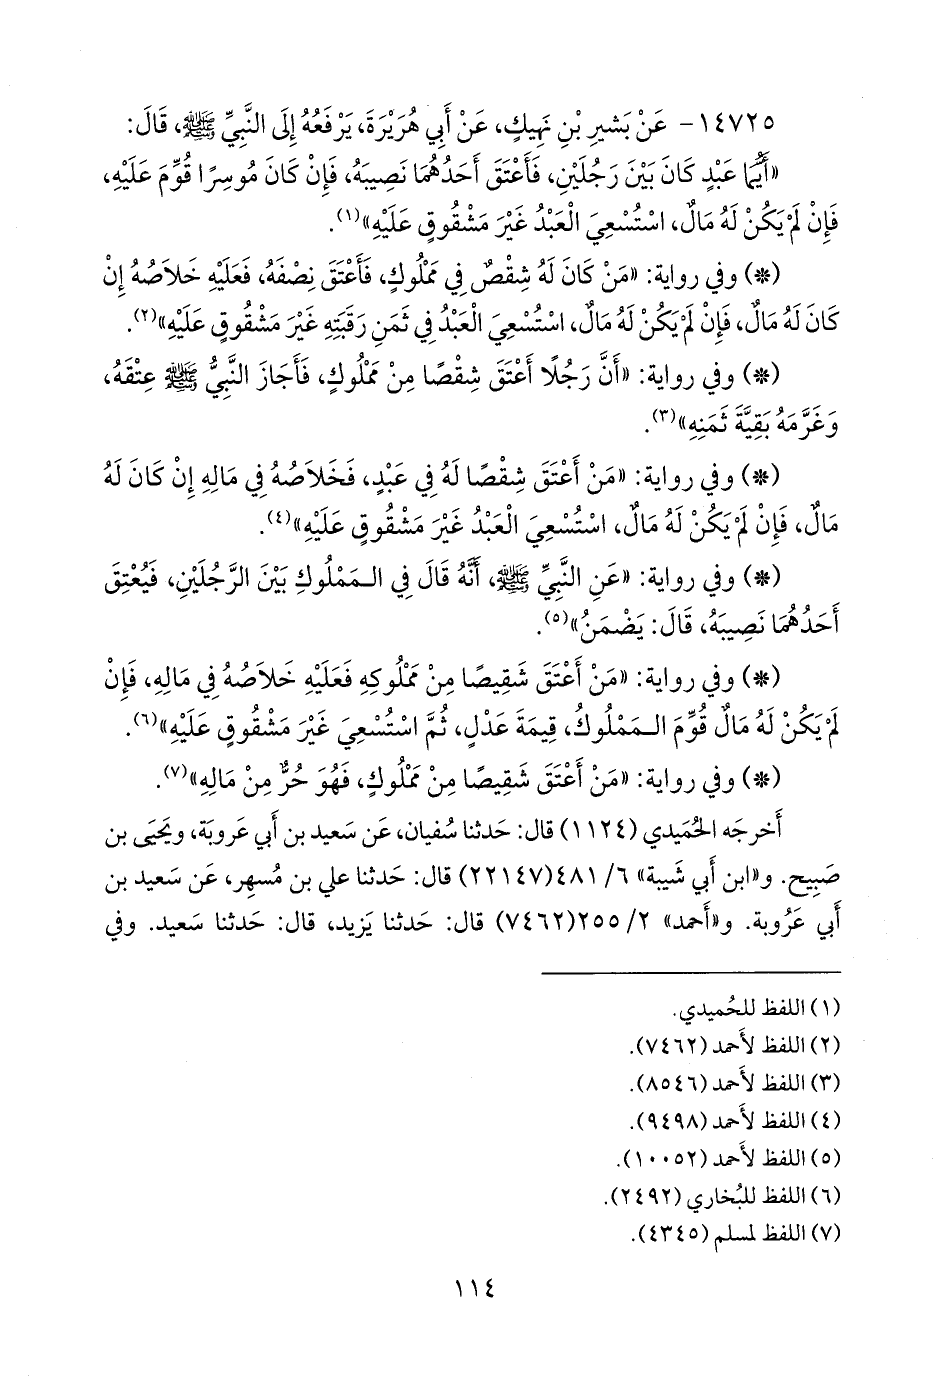 ١٤٧٢٥- عَنْ بَشيرِ بْنِ نَهِيكٍ، عَنْ أَبِي هُرَيْرَةَ، يَرْفَعُهُ إِلَى النَّبِيِّ ﷺ، قَالَ:
«أَيُّمَا عَبْدٍ كَانَ بَيْنَ رَجُلَيْنِ، فَأَعْتَقَ أَحَدُهُمَا نَصِيبَهُ، فَإِنْ كَانَ مُوسِرًا قُوِّمَ عَلَيْهِ،
فَإِنْ لَمْ يَكُنْ لَهُ مَالٌ، اسْتُسْعِيَ الْعَبْدُ غَيْرَ مَشْقُوقٍ عَلَيْهِ»(١).
(*) وفي رواية: «مَنْ كَانَ لَهُ شِقْصٌ فِي مَمْلُوكٍ، فَأَعْتَقَ نِصْفَهُ، فَعَلَيْهِ خَلَاصُهُ إِنْ
كَانَ لَهُ مَالٌ، فَإِنْ لَمْ يَكُنْ لَهُ مَالٌ، اسْتُسْعِيَ الْعَبْدُ فِي ثَمَنِ رَقَبَتِهِ غَيْرَ مَشْقُوقٍ عَلَيْهِ»(٢).
(*) وفي رواية: «أَنَّ رَجُلًا أَعْتَقَ شِقْصًا مِنْ مَمْلُوكٍ، فَأَجَازَ النَّبِيُّ ﷺ عِتْقَهُ،
وَغَرَّمَهُ بَقِيَّةَ ثَمَنِهِ»(٣).
(*) وفي رواية: «مَنْ أَعْتَقَ شِقْصًا لَهُ فِي عَبْدٍ، فَخَلَاصُهُ فِي مَالِهِ إِنْ كَانَ لَهُ
مَالٌ، فَإِنْ لَمْ يَكُنْ لَهُ مَالٌ، اسْتُسْعِيَ الْعَبْدُ غَيْرَ مَشْقُوقٍ عَلَيْهِ»(٤).
(*) وفي رواية: «عَنِ النَّبِيِّ ﷺ، أَنَّهُ قَالَ فِي الْـمَمْلُوكِ بَيْنَ الرَّجُلَيْنِ، فَيُعْتِقَ
أَحَدُهُمَا نَصِيبَهُ، قَالَ: يَضْمَنُ»(٥).
(*) وفي رواية: «مَنْ أَعْتَقَ شَقِيصًا مِنْ مَمْلُوكِهِ فَعَلَيْهِ خَلَاصُهُ فِي مَالِهِ، فَإِنْ
لَمْ يَكُنْ لَهُ مَالٌ قُوِّمَ الْـمَمْلُوكُ، قِيمَةَ عَدْلٍ، ثُمَّ اسْتُسْعِيَ غَيْرَ مَشْقُوقٍ عَلَيْهِ»(٦).
(*) وفي رواية: «مَنْ أَعْتَقَ شَقِيصًا مِنْ مَمْلُوكٍ، فَهُوَ حُرٌّ مِنْ مَالِهِ»(٧).
أَخرجَه الحُمَيدي (١١٢٤) قال: حَدثنا سُفيان، عَن سَعيد بن أَبي عَروبَة، ويَحيَى بن
صَبِيح. و«ابن أَبي شَيبة» ٦/ ٤٨١(٢٢١٤٧) قال: حَدثنا علي بن مُسهِر، عَن سَعيد بن
أَبي عَرُوبة. و«أَحمد» ٢/ ٢٥٥(٧٤٦٢) قال: حَدثنا يَزيد، قال: حَدثنا سَعيد. وفي
(١) اللفظ للحُميدي.
(٢) اللفظ لأَحمد (٧٤٦٢).
(٣) اللفظ لأَحمد (٨٥٤٦).
(٤) اللفظ لأَحمد (٩٤٩٨).
(٥) اللفظ لأَحمد (١٠٠٥٢).
(٦) اللفظ للبُخاري (٢٤٩٢).
(٧) اللفظ لمسلم (٤٣٤٥).
١١٤